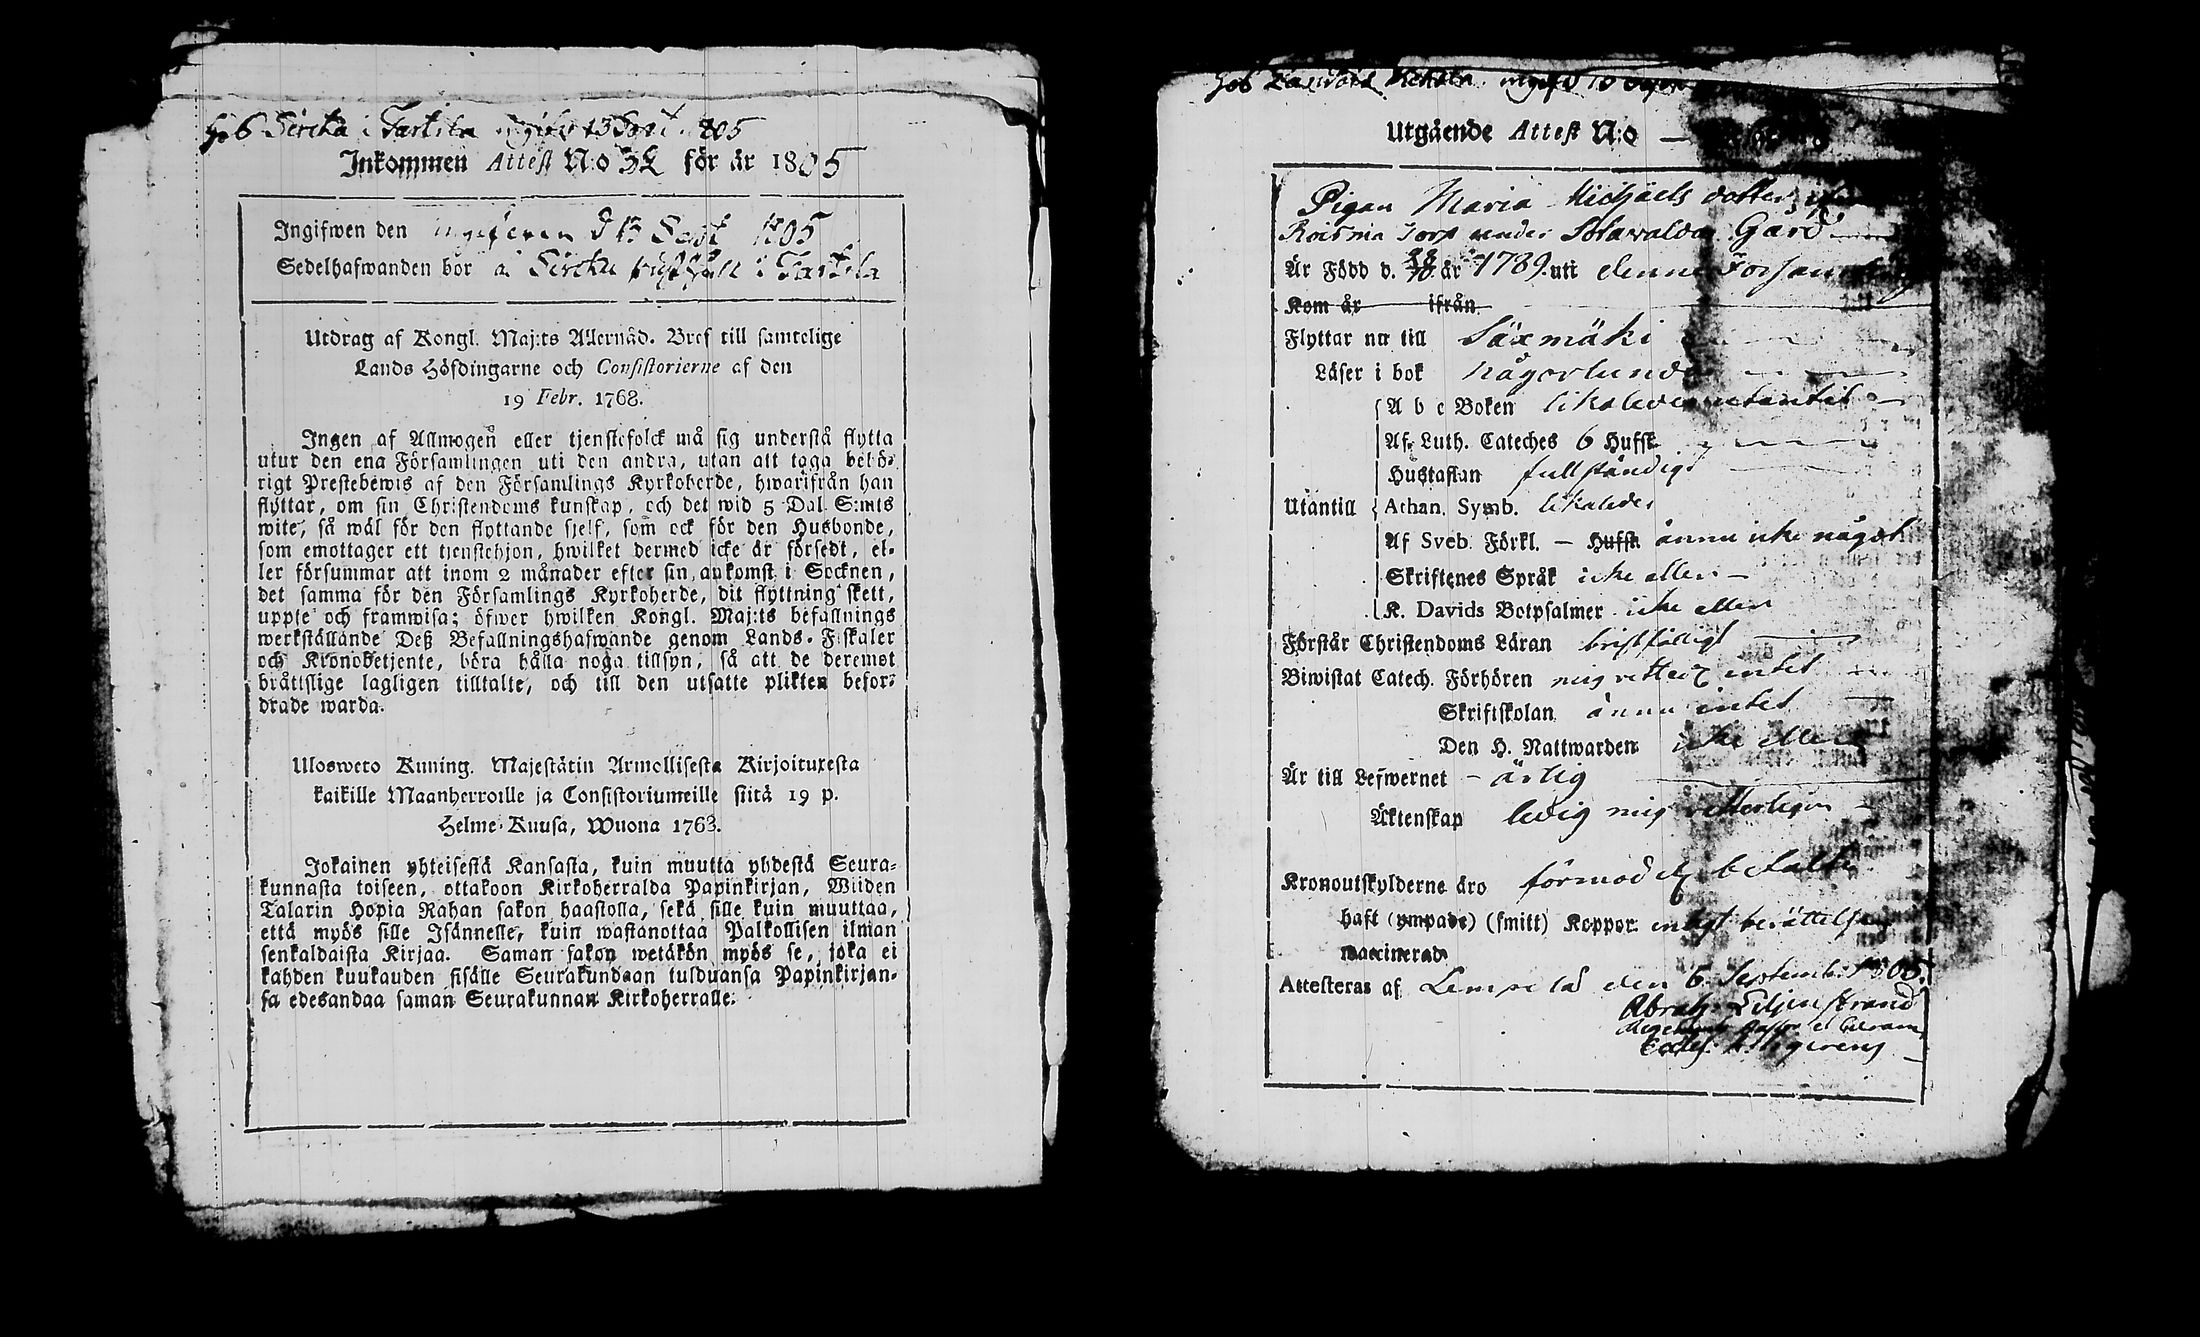 Inkommen Attest N:o 32 för år 1805
Ingifwen den d 13 Sept 1805
Sedelhafwanden bor i
Utdrag af Kongl. Maj:ts Allernåd. Bref till samtelige
Lands Höfdingarne och Consistorierne af den
19 Febr. 1768.
Ingen af Allmogen eller tjenstefolck må sig understå flytta
utur den ena Församlingen uti den andra, utan att taga behö-
rigt Prestebewis af den Församlings Kyrkoherde, hwarifrån han
flyttar, om sin Christendoms kunskap, och det wid 5 Dal. S:mts
wite, så wäl för den flyttande sjelf, som ock för den Husbonde,
som emottager ett tjenstehjon, hwilket dermed icke är försedt, el-
ler försummar att inom 2 månader efter sin ankomst i Socknen,
det samma för den Församlings Kyrkoherde, dit flyttning skett,
uppte och framwisa; öfwer hwilken Kongl. Maj:ts befallnings
werkställande Deß Befallningshafwande genom Lands-Fiskaler
och Kronobetjente, böra hålla noga tillsyn, så att de deremot
bråttslige lagligen tilltalte, och till den utsatte plikten befor-
drade warda.
Ulosweto Kuning. Majestätin Armollisesta Kirjoituxesta
kaikille Maanherroille ja Consistoriumeille siitä 19 p.
Helme-Kuusa, Wuona 1768.
Jokainen yhteisestä Kansasta, kuin muutta yhdestä Seura-
kunnasta toiseen, ottakoon Kirkoherralda Papinkirjan, Wiiden
Talarin Hopia Rahan sakon haastolla, sekä sille kuin muuttaa,
että myös sille Isännelle, kuin wastanottaa Palkollisen ilman
senkaldaista Kirjaa. Saman sakon wetäkön myös se, joka ei
kahden kuukauden sisälle Seurakundaan tulduansa Papinkirjan-
sa edesandaa saman Seurakunnan Kirkoherralle.
Utgående Attest N:o —
Pigan Maria Michaels dotter
torp under Gård
Är Född d. år 1789 uti denna Församling
Kom år ifrån
Flyttar nu till Säxmäki
Läser i bok någorlunda
A b c Boken likaledes utantil
Af Luth. Cateches 6 Hufst.
Hustaflan fullständigt
Utantill Athan. Symb. likaledes
Af Sveb. Förkl. — Hufst. ännu icke något
Skriftenes Språk icke eller
K. Davids Botpsalmer icke eller
Förstår Christendoms Läran bristfälligt
Biwistat Catech. Förhören mig vetterl. intet
Skriftskolan ännu intet
Den H. Nattwarden icke eller
Är till Lefwernet – ärlig
Äktenskap ledig mig vetterligen
Kronoutskylderne äro förmodel. betalte
haft (ympade) (smitt) Koppor enligt berättelse
vaccinerad
Attesteras af Lempelä den 6 September 1805.
Abrah. Liljenstrand